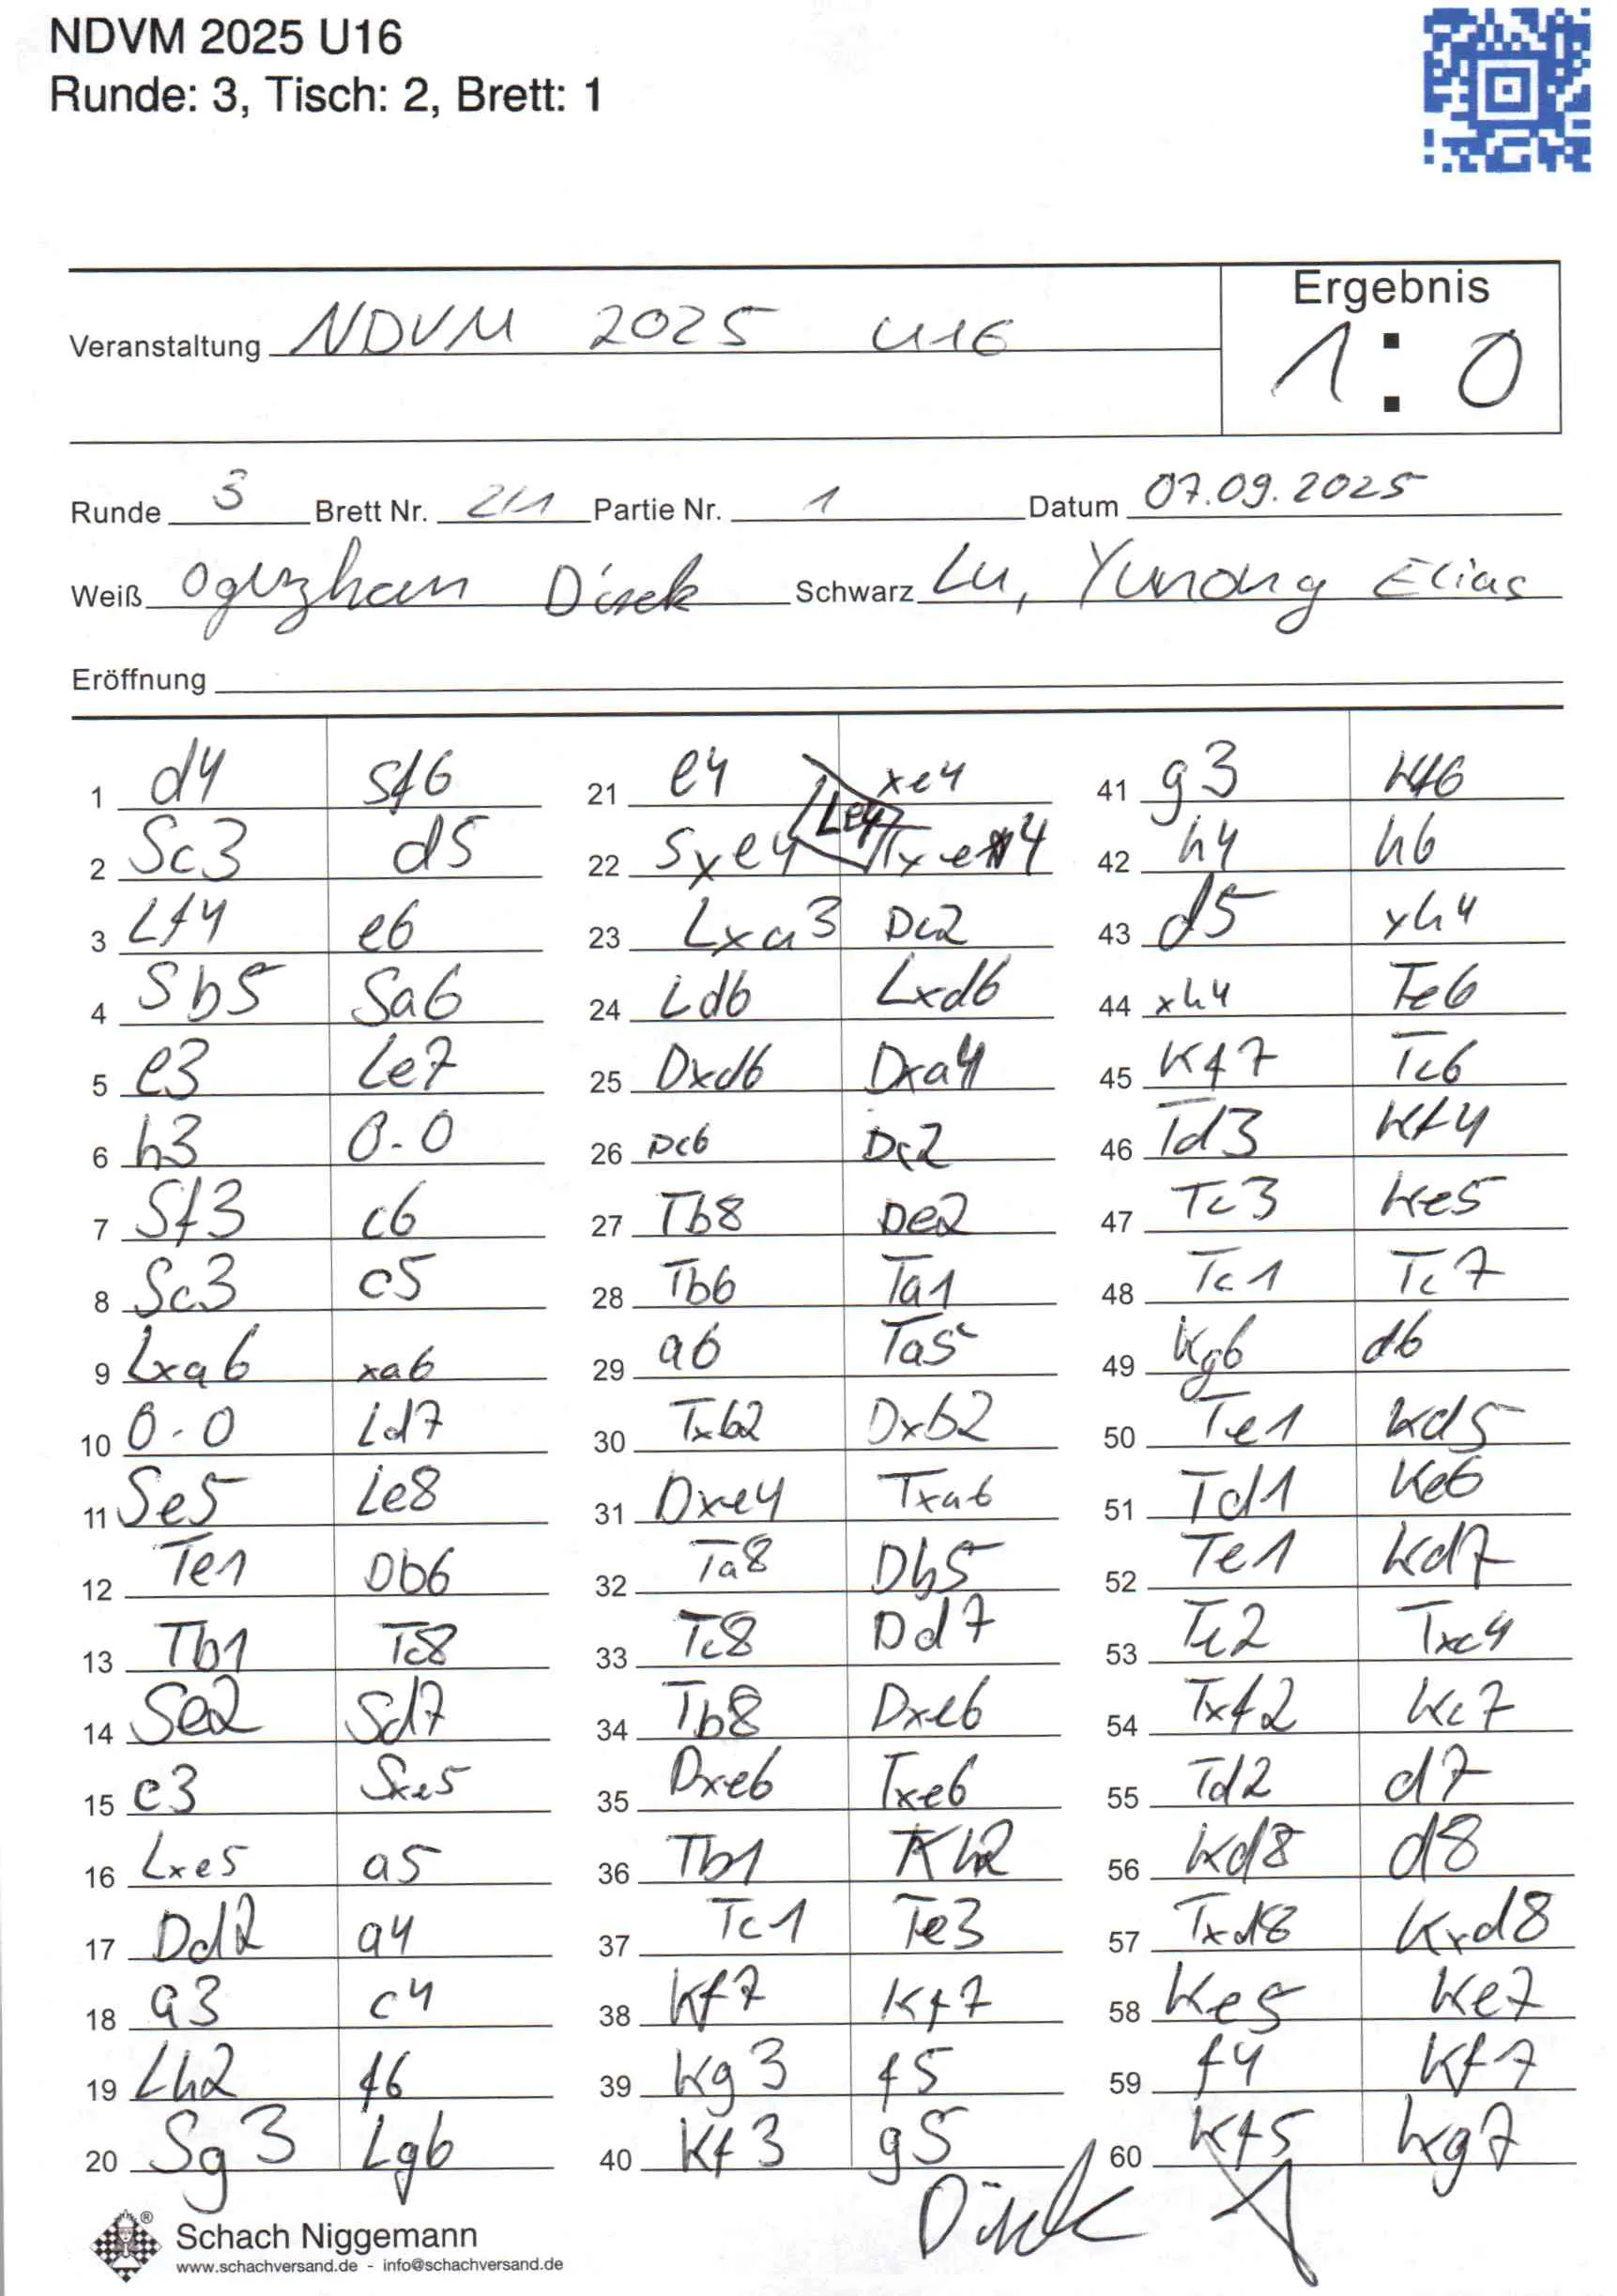 NDVM 2025 U16
Runde: 3, Tisch: 2, Brett: 1
Ergebnis
Veranstaltung NDVM 2025 U16
1 : 0
Runde 3 Brett Nr. 2/1 Partie Nr. 1 Datum 07.09.2025
Weiß Oguzhan Direk Schwarz Lu, Yunong Elias
Eröffnung
1 d4 Sf6
2 Sc3 d5
3 Lf4 e6
4 Sb5 Sa6
5 e3 Le7
6 h3 0-0
7 Sf3 c6
8 Sc3 c5
9 Lxa6 xa6
10 0-0 Ld7
11 Se5 Le8
12 Te1 Db6
13 Tb1 Tc8
14 Se2 Sd7
15 c3 Sxe5
16 Lxe5 a5
17 Dd2 a4
18 a3 c4
19 Lh2 f6
20 Sg3 Lg6
21 e4 xe4
22 Sxe4 Lxe4
23 Lxa3 Dc2
24 Ld6 Lxd6
25 Dxd6 Dxa4
26 Dc6 Dc2
27 Tb8 De2
28 Tb6 Ta1
29 a6 Ta5
30 Txb2 Dxb2
31 Dxe4 Txa6
32 Ta8 Db5
33 Tc8 Dd7
34 Tb8 Dxe6
35 Dxe6 Txe6
36 Tb1 Kh2
37 Tc1 Te3
38 Kf7 Kf7
39 Kg3 f5
40 Kf3 g5
41 g3 Kf6
42 h4 h6
43 d5 xh4
44 xh4 Te6
45 Kf7 Tc6
46 Td3 Kf4
47 Tc3 Ke5
48 Tc1 Tc7
49 Kg6 d6
50 Te1 Kd5
51 Td1 Ke6
52 Te1 Kd7
53 Tc2 Txc4
54 Txf2 Kc7
55 Td2 d7
56 Kd8 d8
57 Txd8 Kxd8
58 Ke5 Ke7
59 f4 Kf7
60 Kf5 Kg7
Direk
Schach Niggemann
www.schachversand.de - info@schachversand.de